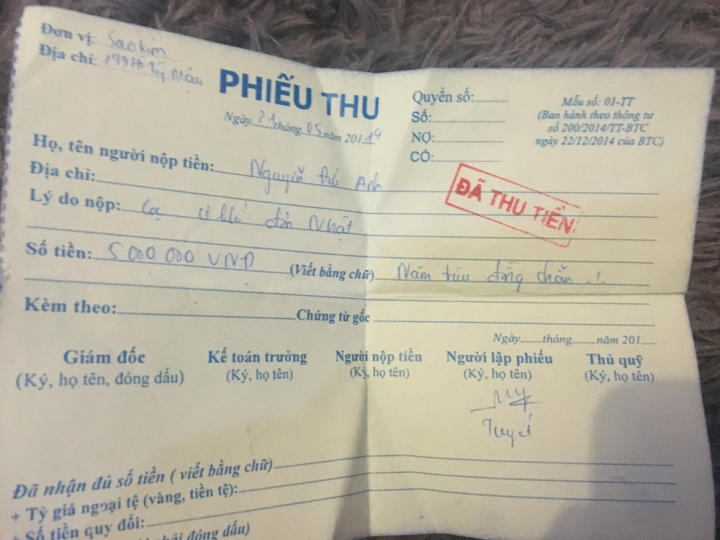 Đơn vị: Sao kim
Địa chỉ: 199
PHIẾU THU
Ngày 21 tháng 05 năm 2019
Quyển số:
Số:
NỢ:
CÓ:
Mẫu số: 01-TT
(Ban hành theo thông tư
số 200/2014/TT-BTC
ngày 22/12/2014 của BTC)
Họ, tên người nộp tiền: Nguyễn Đức Anh
Địa chỉ:
ĐÃ THU TIỀN
Lý do nộp: Nhật
Số tiền: 5 000.000 VNĐ (Viết bằng chữ) Năm triệu đồng chẵn ./.
Kèm theo: Chứng từ gốc
Ngày tháng năm 201
Giám đốc Kế toán trưởng Người nộp tiền Người lập phiếu Thủ quỹ
(Ký, họ tên, đóng dấu) (Ký, họ tên) (Ký, họ tên) (Ký, họ tên) (Ký, họ tên)
Tuyết
Đã nhận đủ số tiền ( viết bằng chữ)
+ Tỷ giá ngoại tệ (vàng, tiền tệ):
+ Số tiền quy đổi:
đóng dấu)